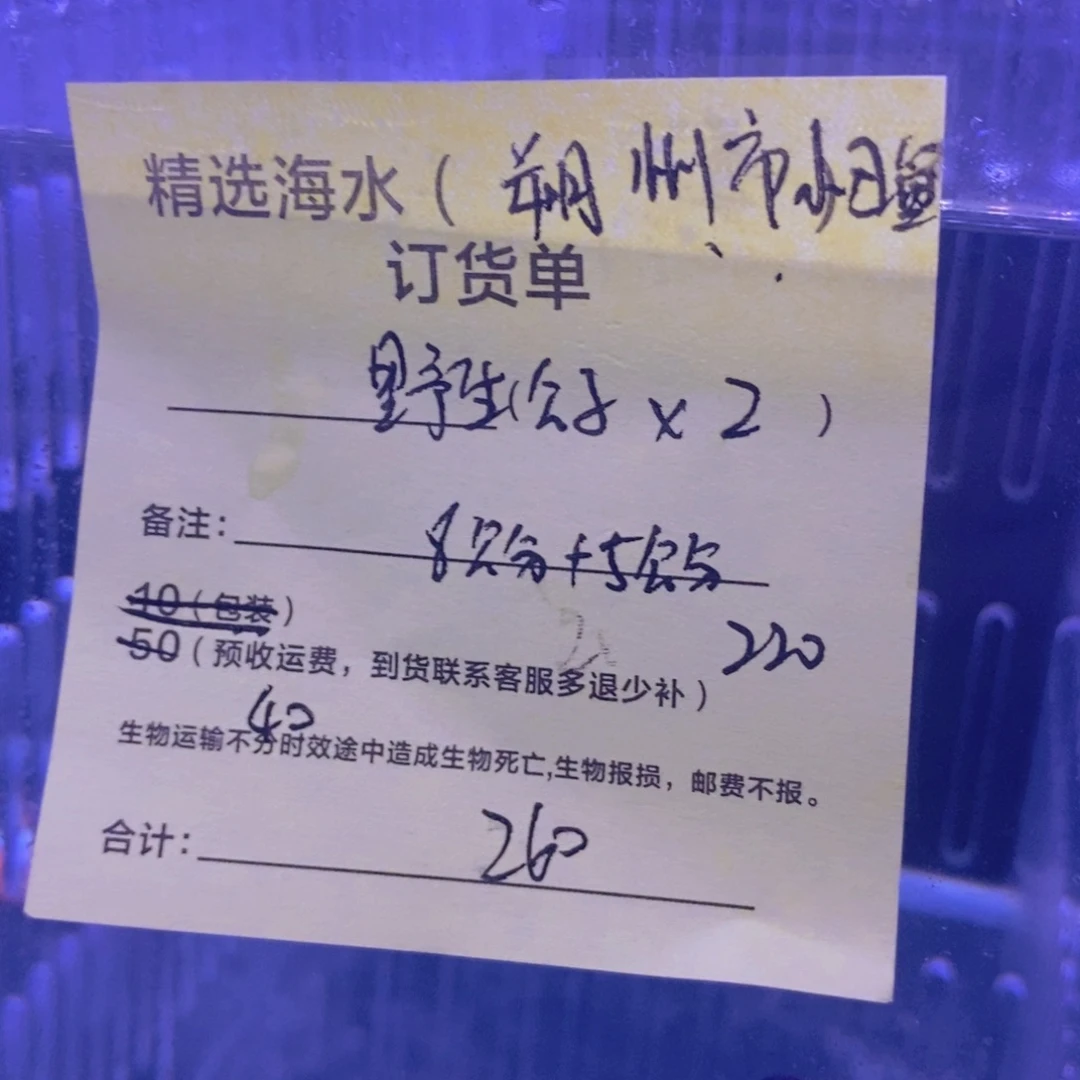 精选海水（朔州市
订货单
野生(公子 x 2 )
备注: 8只分 + 5
10（包装）
220
50（预收运费，到货联系客服多退少补）
40
生物运输不分时效途中造成生物死亡,生物报损，邮费不报。
合计: 260